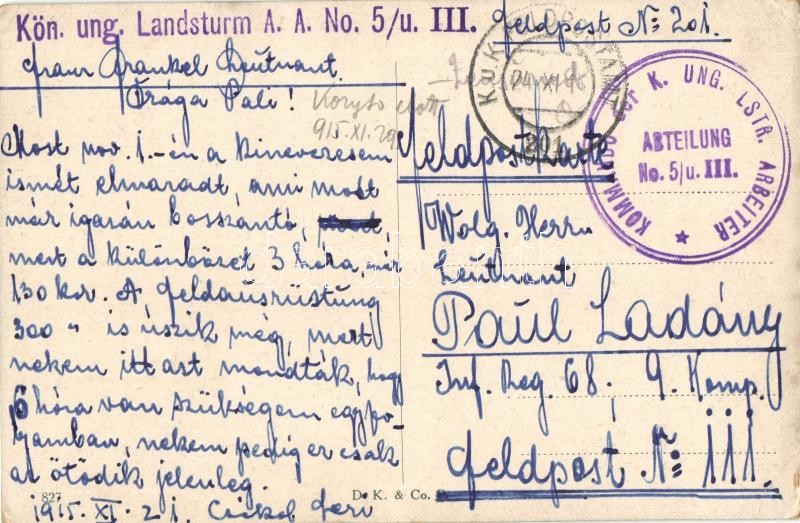 Kön. ung. Landsturm A. A. No. 5/u. III.
Feldpost No 201.
Franz Frankel Leutnant.
Drága Pali!
915.XI.29
Most nov. 1.-én a kineveresem
ismét elmaradt, ami most
már igazán bosszantó,
mert a különbözet 3 hóra már
130 kor. A Feldausrüstung
300 " is úszik még, mert
nekem itt azt mondták, hogy
6 hóra van szükségem egyfo-
lytamban, nekem pedig ez csak
az ötödik jelenleg.
1915. XI. 21.
K.u.K. FELDPOSTAMT
24.XI.15
201
KOMMANDO der K. UNG. LSTR. ARBEITER
ABTEILUNG
No. 5/u. III.
Feldpostkarte
Wolg. Herrn
Leutnant
Paul Ladány
Inf. Reg. 68, 9. Komp.
Feldpost No 111.
827
D. K. & Co.